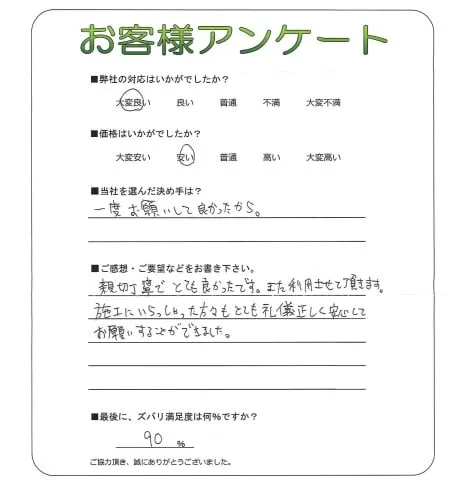 お客様アンケート
■弊社の対応はいかがでしたか?
大変良い 良い 普通 不満 大変不満
■価格はいかがでしたか?
大変安い 安い 普通 高い 大変高い
■当社を選んだ決め手は?
一度お願いして良かったから。
■ご感想・ご要望などをお書き下さい。
親切丁寧でとても良かったです。また利用させて頂きます。
施工にいらっしゃった方々もとても礼儀正しく安心して
お願いすることができました。
■最後に、ズバリ満足度は何%ですか?
90 %
ご協力頂き、誠にありがとうございました。